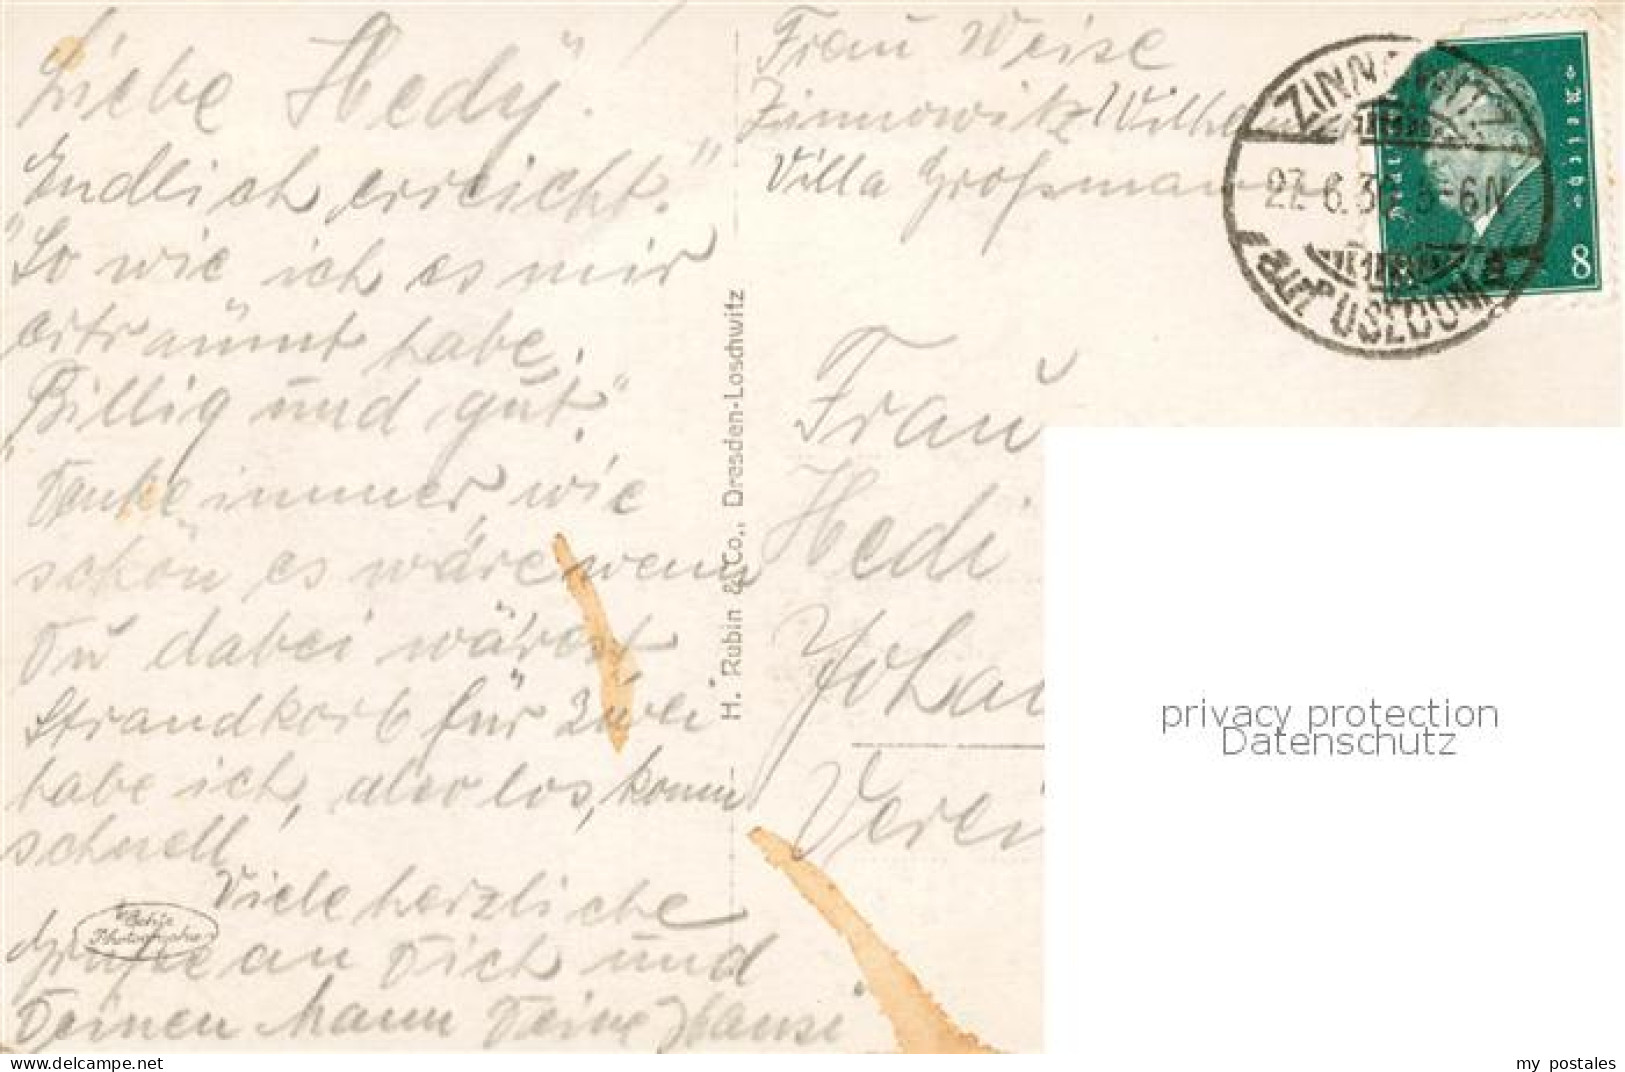 Liebe Hedy!
Endlich erreicht."
"So wie ich es mir
erträumt habe,
Billig und gut."
Denke immer, wie
schön es wäre wenn
Du dabei wärest
Strandkorb für zwei
habe ich, also los, komm
schnell
Viele herzliche
Grüße an Dich und
Deinen Mann Deine Hansi
Echte
Photographie
H. Rubin & Co., Dresden-Loschwitz
Frau Weise
Zinnowitz Wilh
Villa Großmann
ZINNOWITZ
27.6.30. 5-6N
a
auf USEDOM
8
Frau
Hedi
Johan
Verei
privacy protection
Datenschutz
my postales